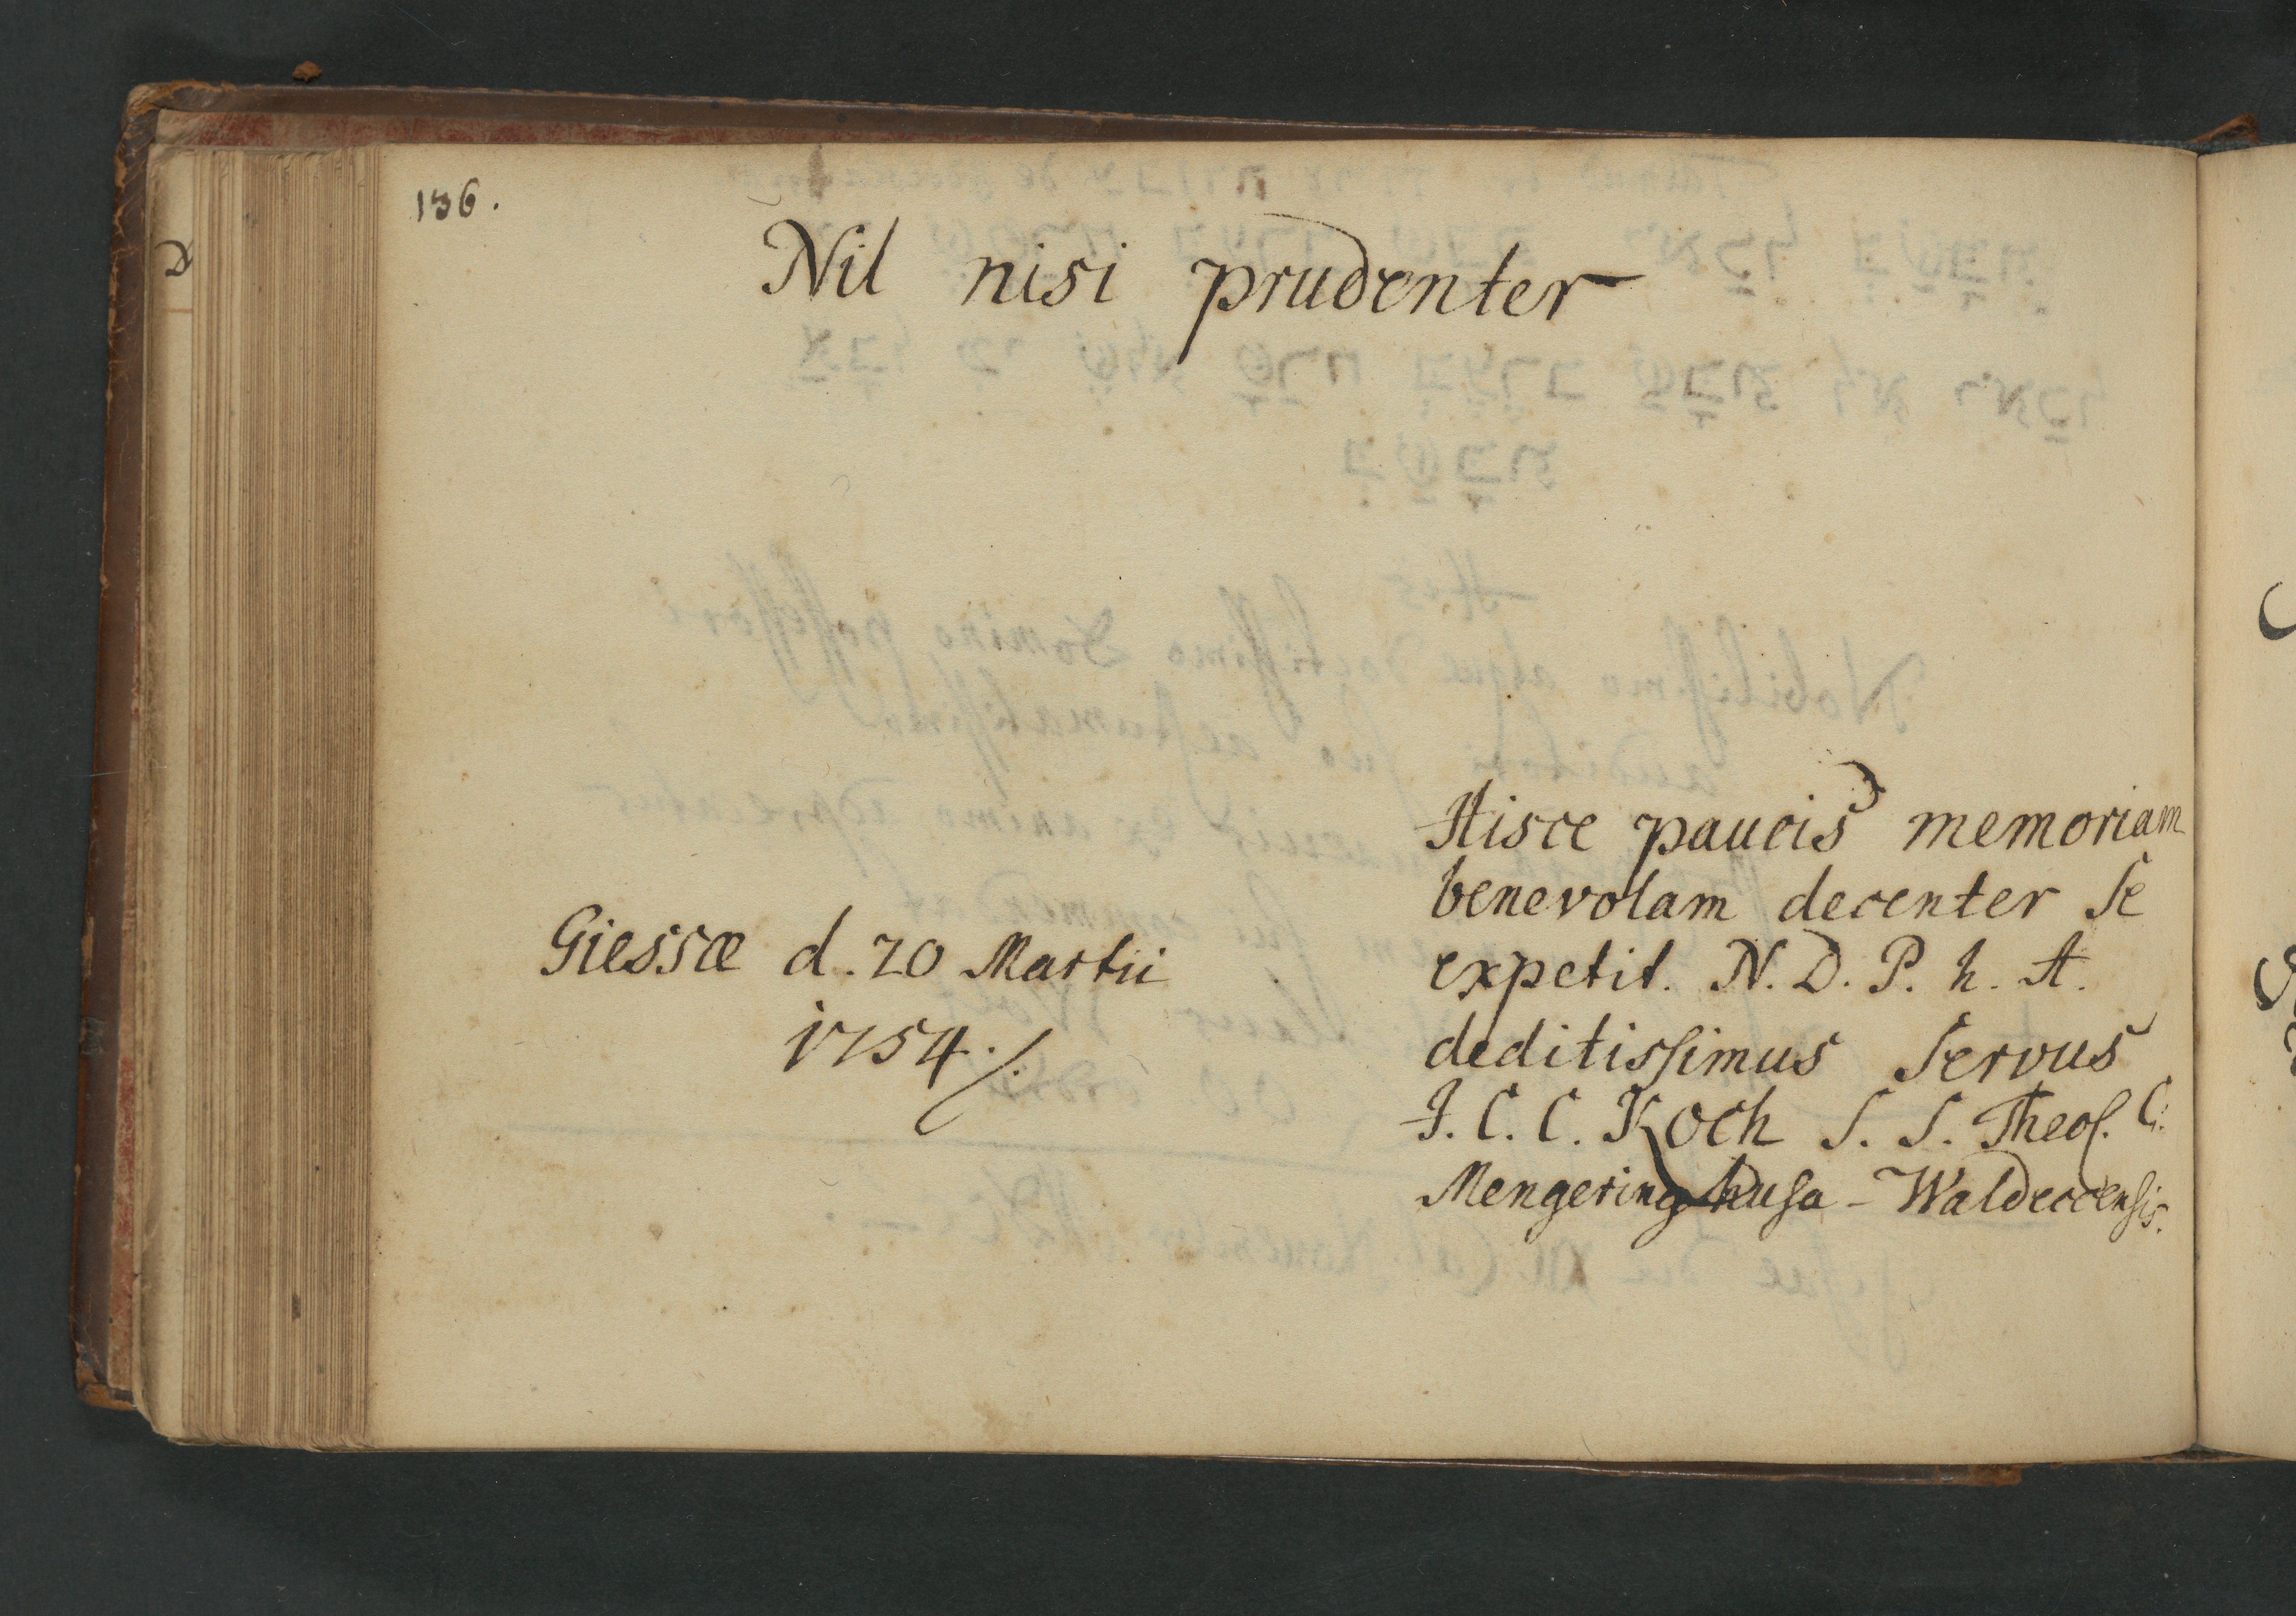 136.
Nil nisi prudenter
Giessæ d. 20 Martii
1754 ./.
Hisce paucis memoriam
benevolam decenter Se
expetit. N. D. P. h. A.
deditissimus Servus
J. C. C. Koch S. S. Theol. C.
Mengeringhusa - Waldeccensis.